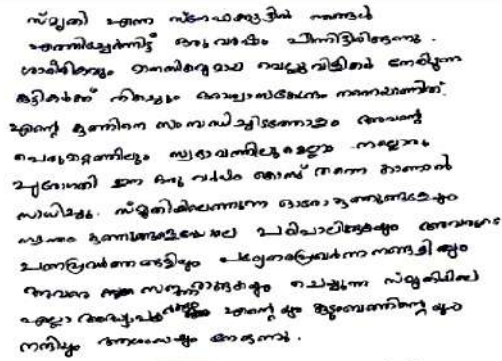 സ്മൃതി എന്ന സ്നേഹക്കൂട്ടിൽ ഞങ്ങൾ
എത്തിച്ചേർന്നിട്ട് ഒരു വർഷം പിന്നിട്ടിരിക്കുന്നു.
ശാരീരികവും മാനസികവുമായ വെല്ലുവിളികൾ നേരിടുന്ന
കുട്ടികൾക്ക് നിത്യവും ഒരാശ്വാസകേന്ദ്രം തന്നെയാണിത്.
എന്റെ കുഞ്ഞിനെ സംബന്ധിച്ചിടത്തോളം അവന്റെ
പെരുമാറ്റത്തിലും സ്വഭാവത്തിലുമെല്ലാം നല്ലൊരു
പുരോഗതി ഈ ഒരു വർഷം കൊണ്ട് തന്നെ കാണാൻ
സാധിച്ചു. സ്മൃതിയിലെത്തുന്ന ഓരോ കുഞ്ഞുങ്ങളേയും
സ്വന്തം കുഞ്ഞുങ്ങളെപോലെ പരിപാലിക്കുകയും അവരുടെ
പഠനപ്രവർത്തനങ്ങളിലും പാഠ്യേതരപ്രവർത്തനങ്ങളിലും
അവരെ സജ്ജരാക്കുകയും ചെയ്യുന്ന സ്മൃതിയിലെ
എല്ലാ അദ്ധ്യാപകർക്കും എന്റെയും കുടുംബത്തിന്റെയും
നന്ദിയും ആശംസയും നേരുന്നു.